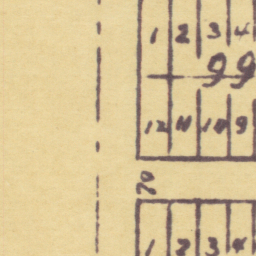 1 2 3 4
99
12 11 10 9
70
1 2 3 4